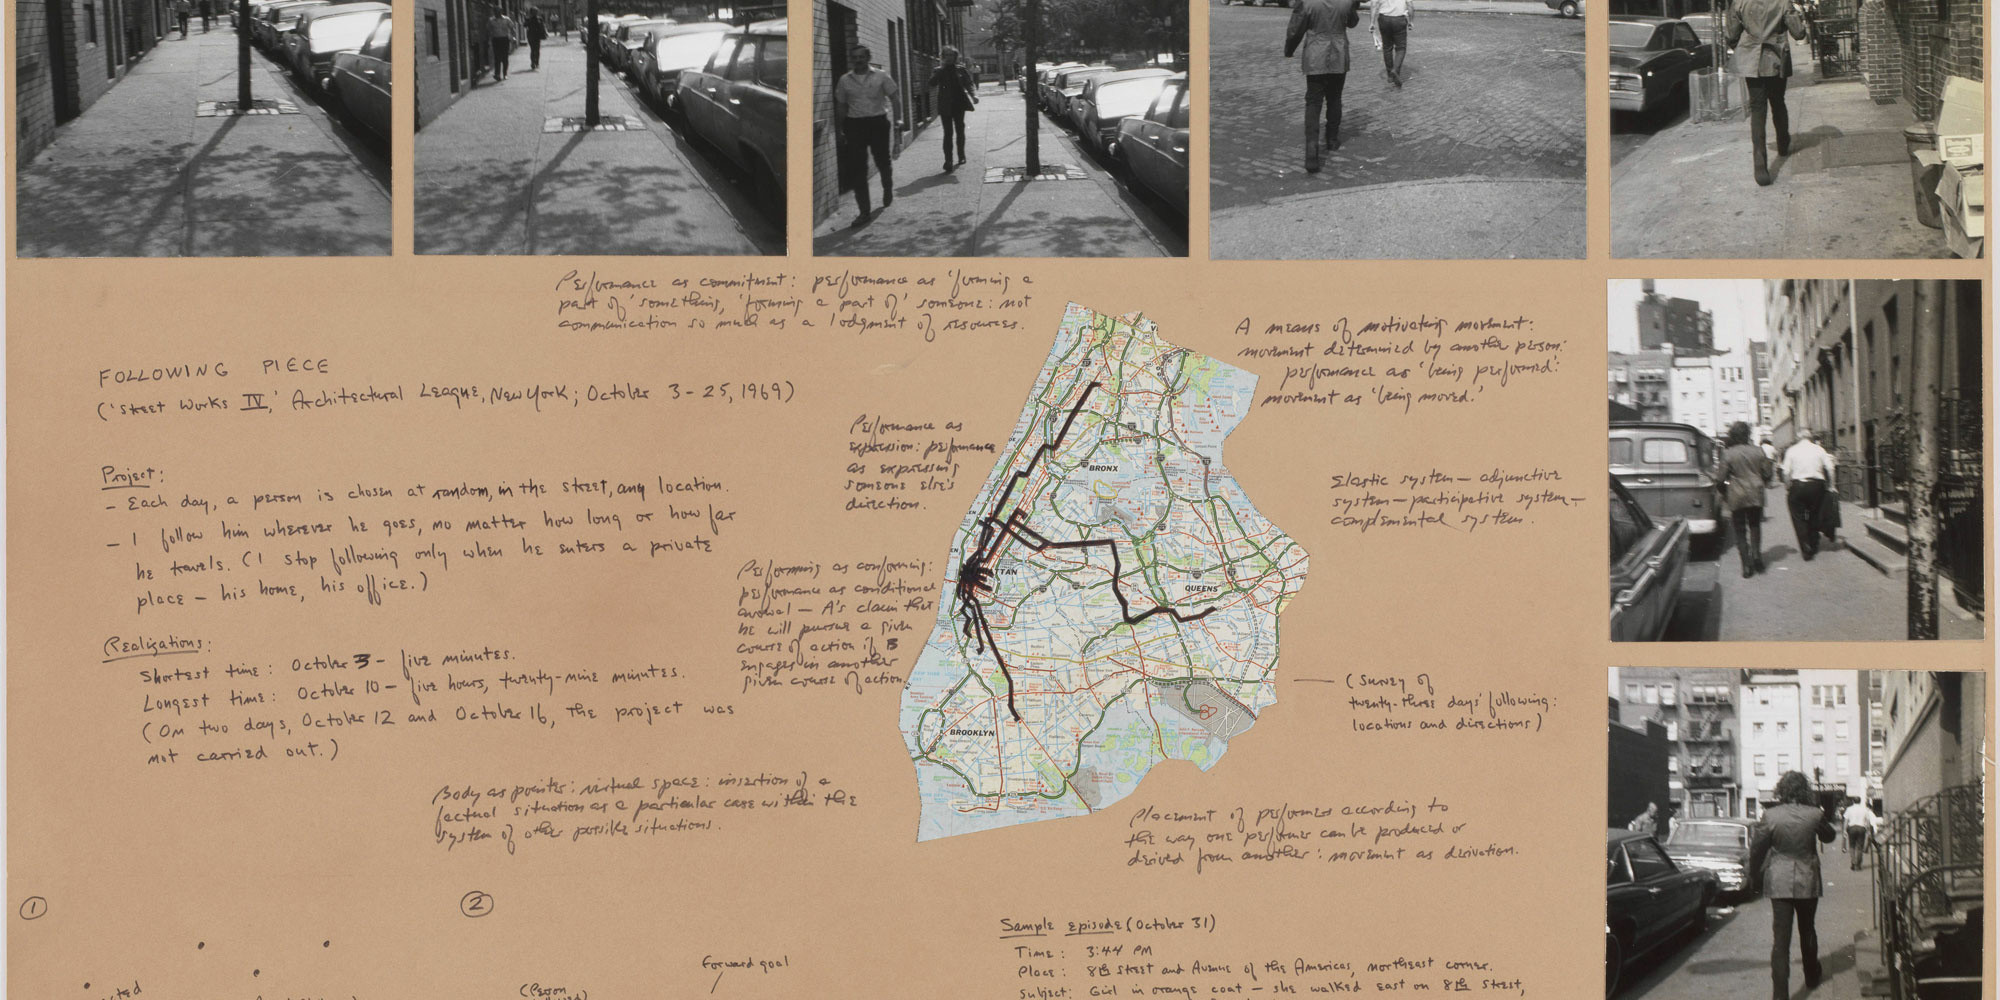 Performance as commitment: performance as 'forming a
part of' something, 'forming a part of' someone: not
communication so much as a lodgment of resources.
FOLLOWING PIECE
('Street Works IV,' Architectural League, New York; October 3-25, 1969)
Project:
- Each day, a person is chosen at random, in the street, any location.
- I follow him wherever he goes, no matter how long or how far
he travels. (I stop following only when he enters a private
place - his home, his office.)
Realizations:
Shortest time: October 3 - five minutes.
Longest time: October 10 - five hours, twenty-nine minutes.
(On two days, October 12 and October 16, the project was
not carried out.)
Performance as
expression: performance
as expressing
someone else's
direction.
Performing as conforming:
performance as conditional
avowal - A's claim that
he will pursue a given
course of action if B
engages in another
given course of action.
Body as pointer: virtual space: insertion of a
factual situation as a particular case within the
system of other possible situations.
BRONX
TAN
QUEENS
BROOKLYN
A means of motivating movement:
movement determined by another person:
performance as 'being performed':
movement as 'being moved.'
Elastic system - adjunctive
system - participative system -
complemental system.
(Survey of
twenty-three days' following:
locations and directions)
Placement of performers according to
the way one performer can be produced or
derived from another: movement as derivation.
1
2
Forward goal
(Person
Sample episode (October 31)
Time: 3:44 PM
Place: 8th Street and Avenue of the Americas, northeast corner.
Subject: Girl in orange coat - she walked east on 8th Street,